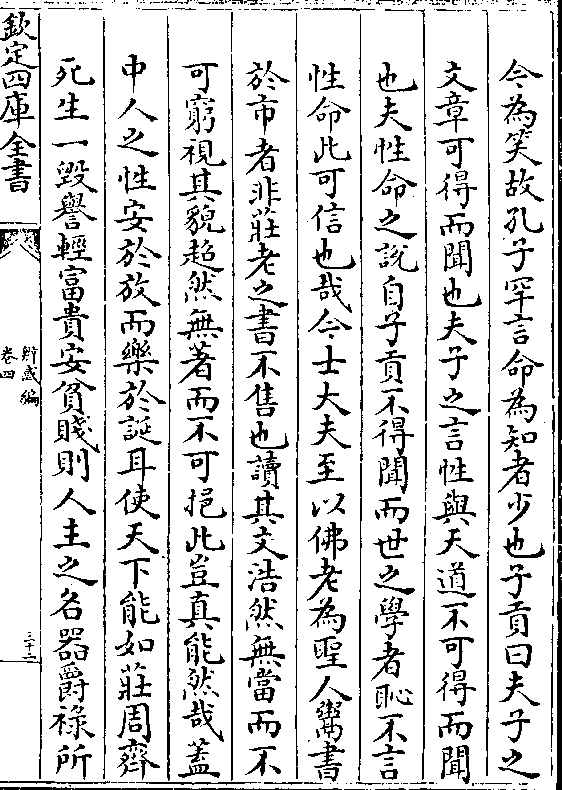 今為笑故孔子罕言命為知者少也子貢曰夫子之
文章可得而聞也夫子之言性與天道不可得而聞
也夫性命之說自子貢不得聞而世之學者恥不言
性命此可信也哉今士大夫至以佛老為聖人鬻書
於市者非莊老之書不售也讀其文浩然無當而不
可窮視其貌超然無著而不可挹此豈真能然哉蓋
中人之性安於放而樂於誕耳使天下能如莊周齊
死生一毀譽輕富貴安貧賤則人主之名器爵祿所
欽定四庫全書
辨惑編
卷四
三十二